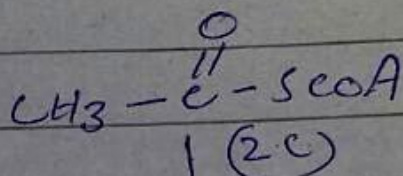 O
||
CH3 - C - SCOA
| (2.C)